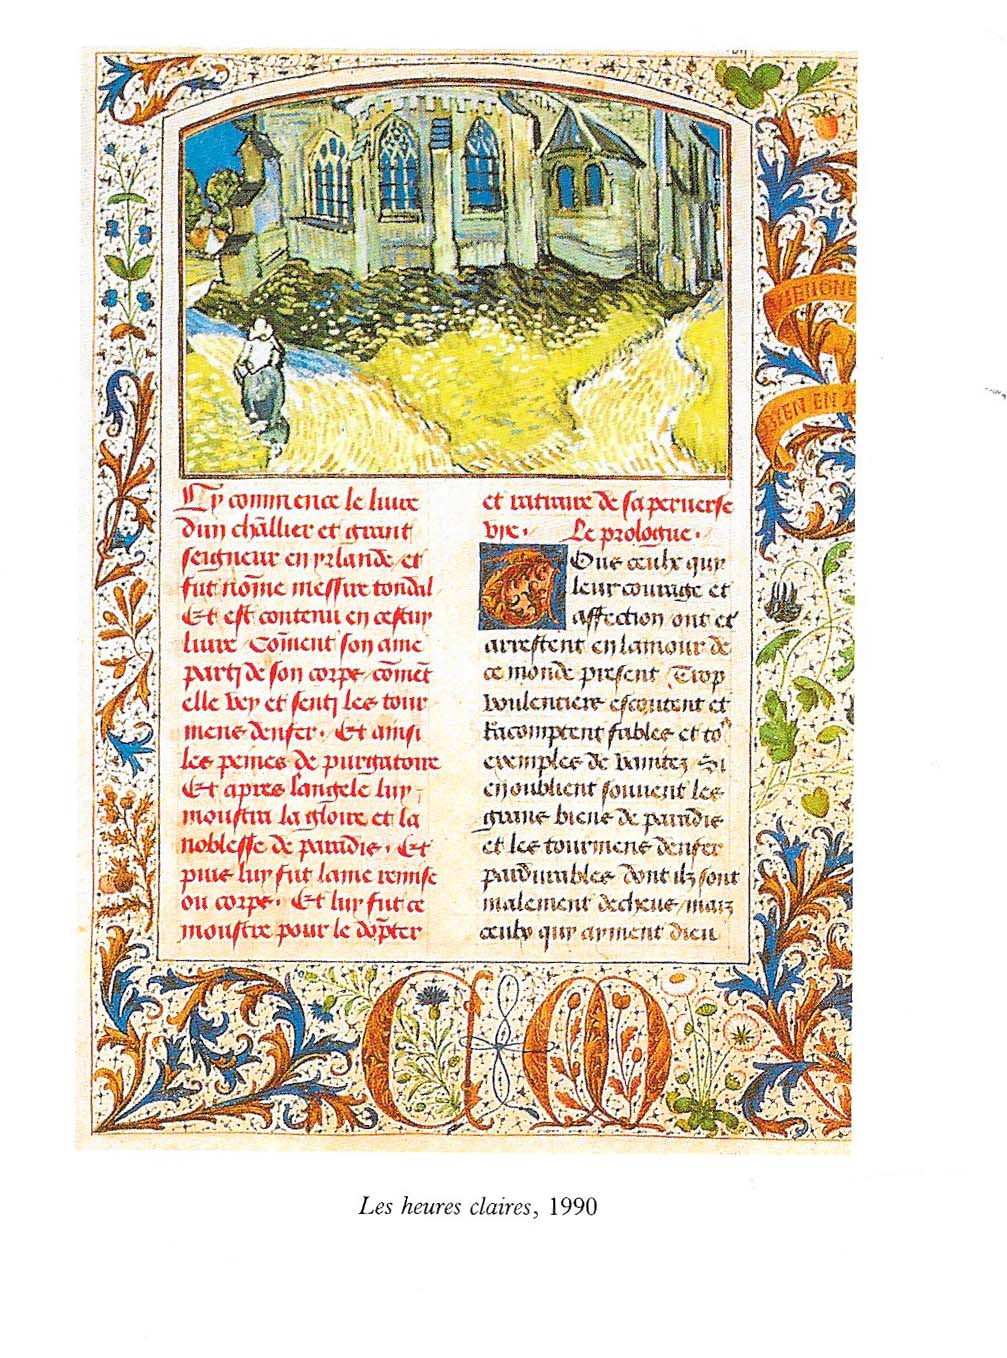 Cy commence le liure
dun chãllier et grant
seigneur en yrlande et
fut nõme messire tondal
Et est contenu en cestuy
liure Cõment son ame
party de son corps cõmẽt
elle vey et senti les tour
mens denfer. Et ainsi
les peines de purgatoire
Et apres langele luy
moustra la gloire et la
noblesse de paradis. Et
puis luy fut lame remise
ou corps. Et luy fut ce
moustre pour le dõpter
et retraire de sa peruerse
vie. Le prologue.
Tous ceulx quy
leur courage et
affection ont et
arrestent en lamour de
ce monde present Trop
voulentiers escoutent et
Racomptent fables et to9
exemples de vanitez Si
en oublient souuent les
grans biens de paradis
et les tourmens denfer
pardurables dont ilz sont
malement decheus / maiz
ceulx quy ayment dieu
BIEN EN A
C M
Les heures claires, 1990